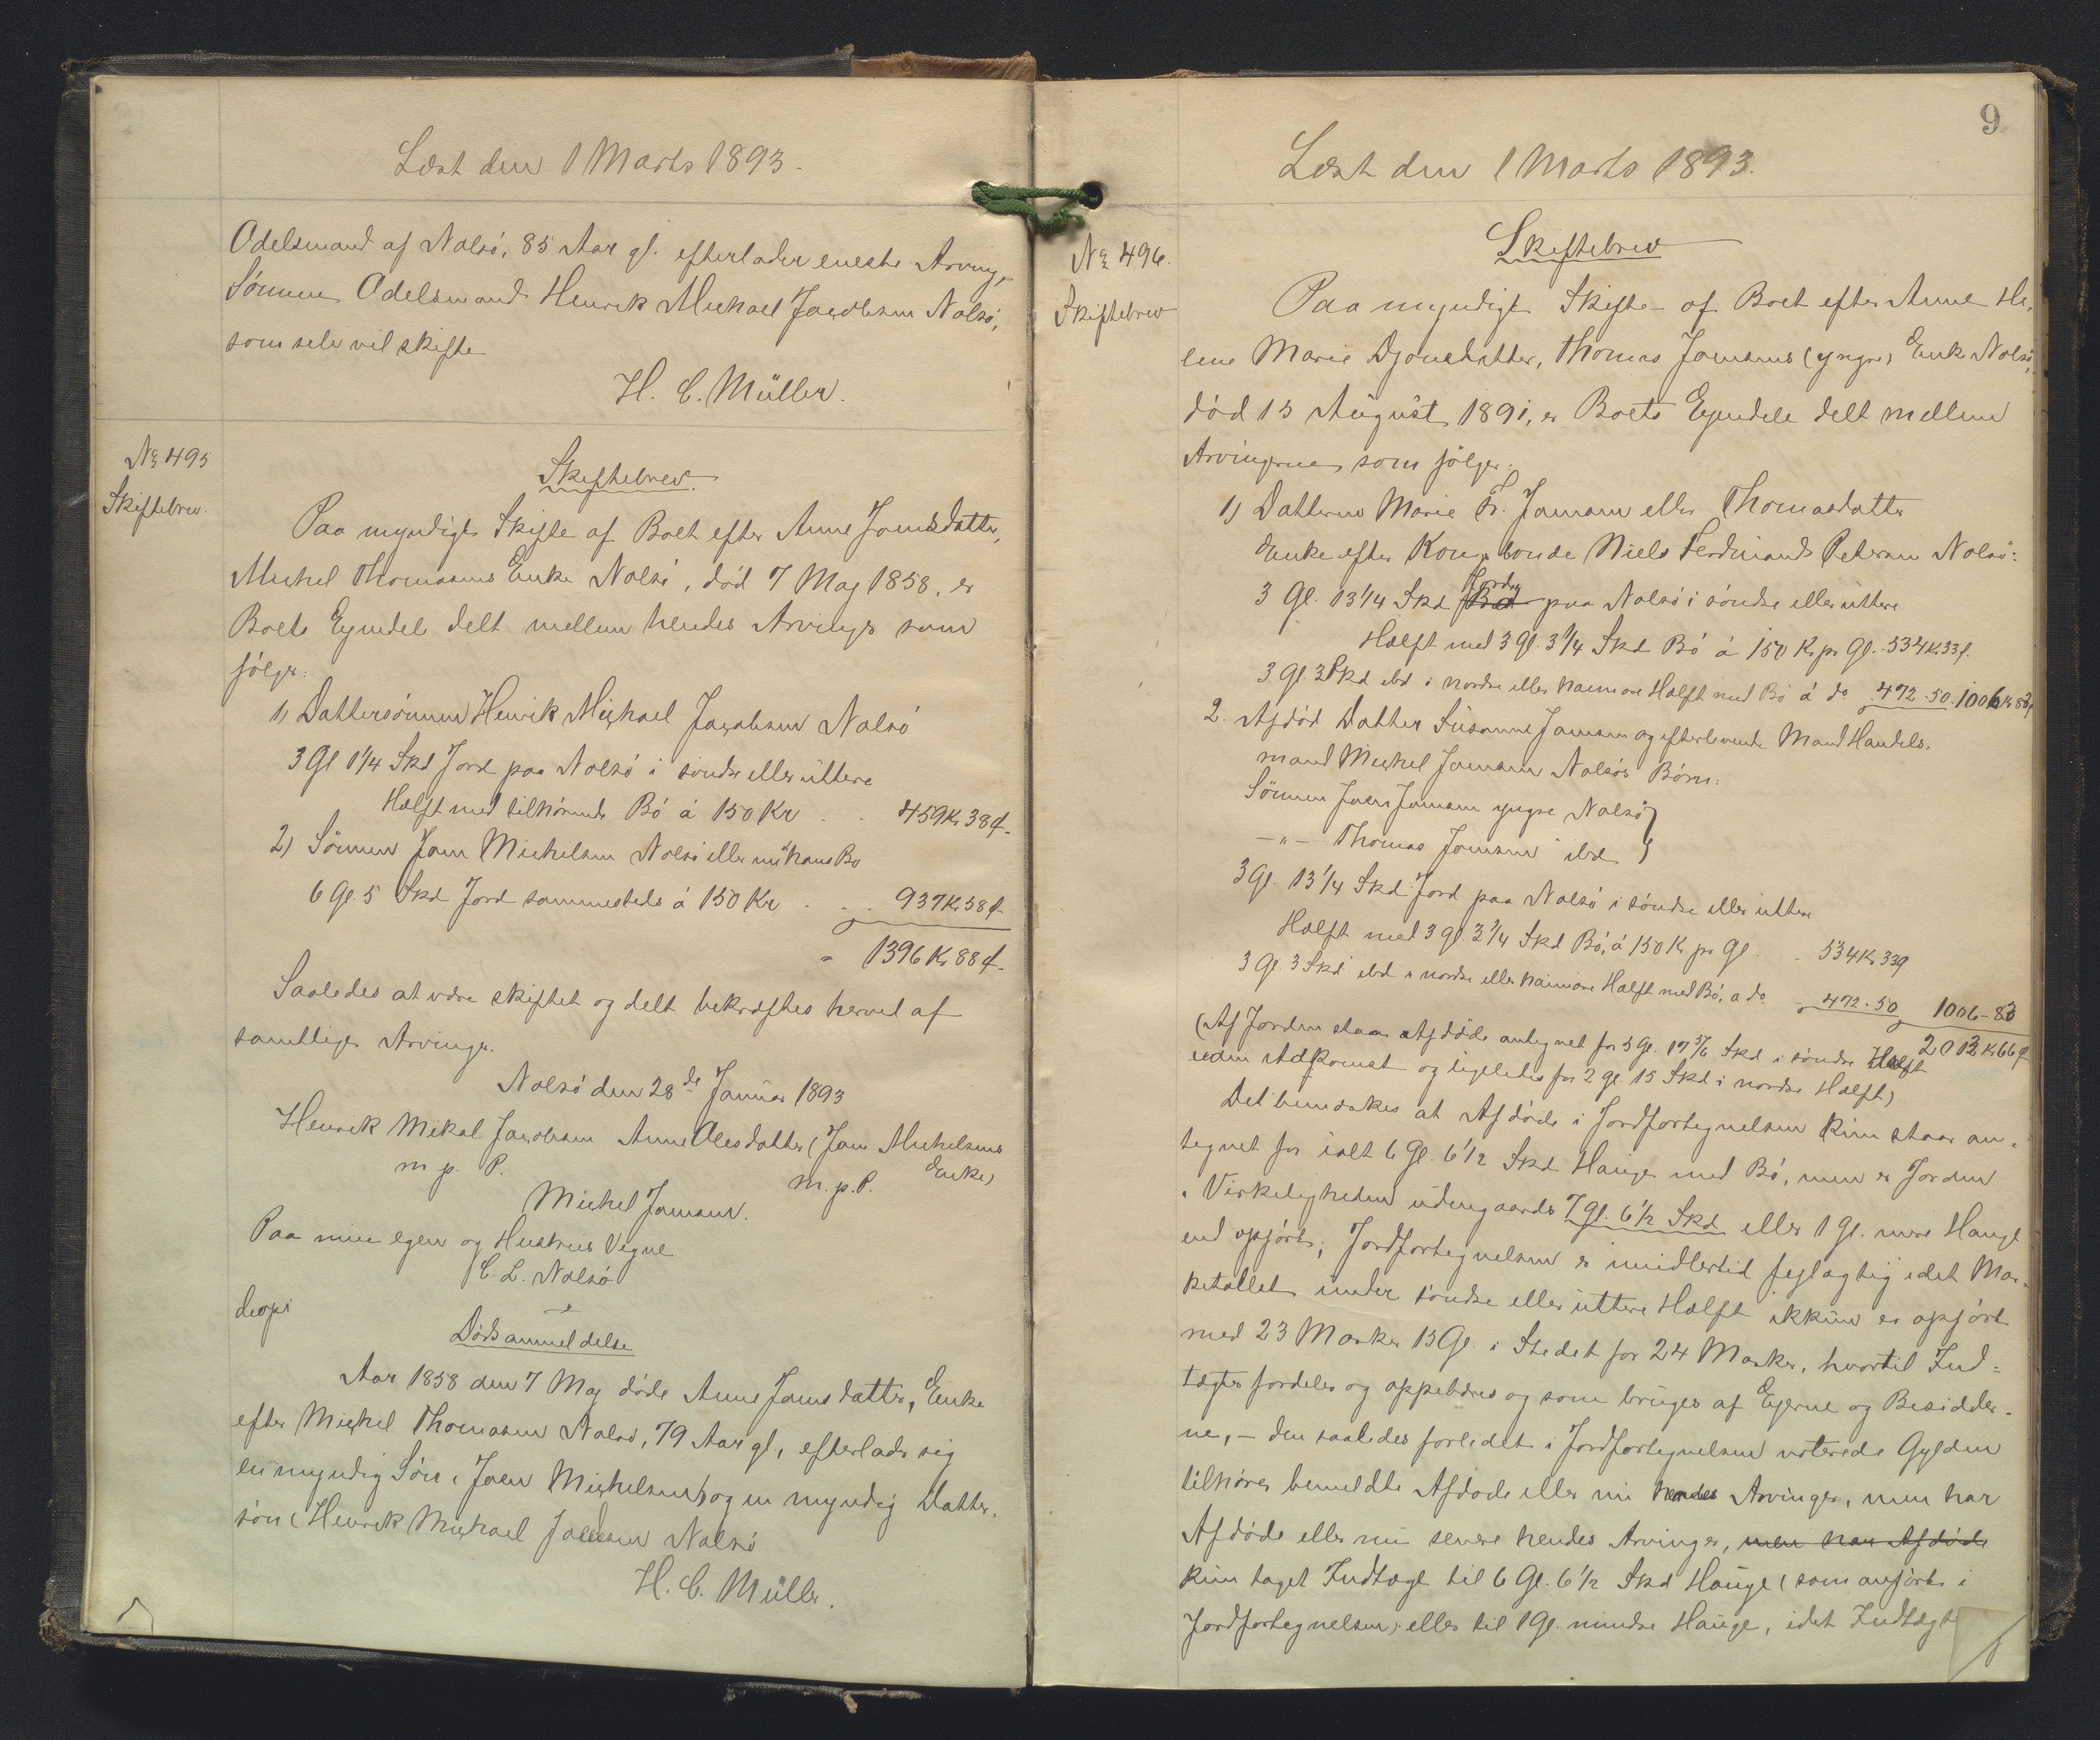 Læst den 1 Marts 1893.
Odelsmand af Nolsö, 85 Aar gl. efterlader eneste Arving,
Sönnen Odelsmand Henrik Michael Jacobsen Nolsö,
som selv vil skifte
H. C. Müller.
No 495
Skiftebrev.
Skiftebrev.
Paa myndigt Skifte af Boet efter Anne Joensdatter,
Michel Thomasens Enke Nolsö, död 7 Maj 1858, er
Boets Ejendele delt mellem hendes Arvinger som
fölger:
1) Dattersönnen Henrik Michael Jacobsen Nolsö
3 Gl 1 1/4 Skd Jord paa Nolsö i söndre eller üttere
Hælft med tilhörende Bö á 150 Kr . . 459 Kr 38 ø.
2) Sönnen Joen Michelsen Nolsö eller nü hans Bo
6 Gl. 5 Skd Jord sammesteds á 150 Kr . . . 937 Kr 58 ø
= 1396 Kr 88 ø.
Saaledes at være skiftet og delt bekræftes herved af
samtlige Arvinger.
Nolsö den 28de Januar 1893
Henrik Mikal Jacobsen Anne Olesdatter (Joen Michelsens
m. p. P. m. p. P. Enke)
Michel Joensen.
Paa min egen og Hustrues Vegne
C. L. Nolsö
Kopi
Dödsanmeldelse
Aar 1858 den 7 Maj döde Anne Joensdatter, Enke
efter Michel Thomasen Nolsö, 79 Aar gl, efterlader sig
en myndig Sön (Joen Michelsen) og en myndig Datter-
sön (Henrik Michael Jacobsen Nolsö
H. C. Müller.
9
Læst den 1 Marts 1893.
No 496.
Skiftebrev
Skiftebrev
Paa myndigt Skifte af Boet efter Anne He-
lene Marie Djonedatter, Thomas Joensens (yngre) Enke Nolsö,
död 15 August 1891, er Boets Ejendele delt mellem
Arvingerne som fölger:
1) Datteren Marie Fr. Joensen eller Thomasdatter
Enke efter Kongsbonde Niels Ferdinand Petersen Nolsö:
3 Gl. 13 1/4 Skd Jord paa Nolsö i söndre eller üttere
Hælft med 3 Gl. 3 1/4 Skd Bö á 150 Kr pr Gl. 534 Kr 33 ø.
3 Gl. 3 Skd ibd i nordre eller haimare Hælft med Bö á do 472-50 1006 Kr 83 ø
2. Afdöd Datter Susanne Joensen og efterlevende Mand Handels-
mand Michel Joensen Nolsös Börn:
Sönnen Joen Joensen yngre Nolsö
-"- Thomas Joensen ibd
3 Gl. 13 1/4 Skd Jord paa Nolsö i söndre eller üttere
Hælft med 3 Gl. 3 1/4 Skd Bö, á 150 Kr pr Gl . . 534 Kr 33 ø
3 Gl. 3 Skd ibd i nordre eller haimare Hælft med Bö, a do 472-50 1006-83
2013 Kr 66 ø
(Af Jorden staar Afdöde antegnet for 3 Gl. 17 5/6 Skd i söndre Hælft
uden Adkomst og ligeledes for 2 gl. 15 Skd i nordre Hælft)
Det bemærkes at Afdöde i Jordfortegnelsen kün staar an-
tegnet for ialt 6 Gl. 6 1/2 Skd Hauge med Bö, men er Jorden
i Virkeligheden udengaards 7 gl. 6 1/2 Skd eller 1 Gl. mere Hauge
end opfört; Jordfortegnelsen er imidlertid fejlagtig idet Mar-
ketallet under söndre eller üttere Hælft ikkün er opfört
med 23 Marker 15 Gl. i Stedet for 24 Marker, hvortil Ind-
tægter fordeles og oppebæres og som bruges af Ejerne og Besidder-
ne, – den saaledes forlidet i Jordfortegnelsen noterede Gylden
tilhörer bemeldte Afdöde eller nü hendes Arvinger, men har
Afdöde eller nü senere hendes Arvinger, men har Afdöde
kün taget Indtægt til 6 Gl. 6 1/2 Skd Hauge (som anfört i
Jordfortegnelsen) eller til 1 Gl. mindre Hauge, idet Indtægt